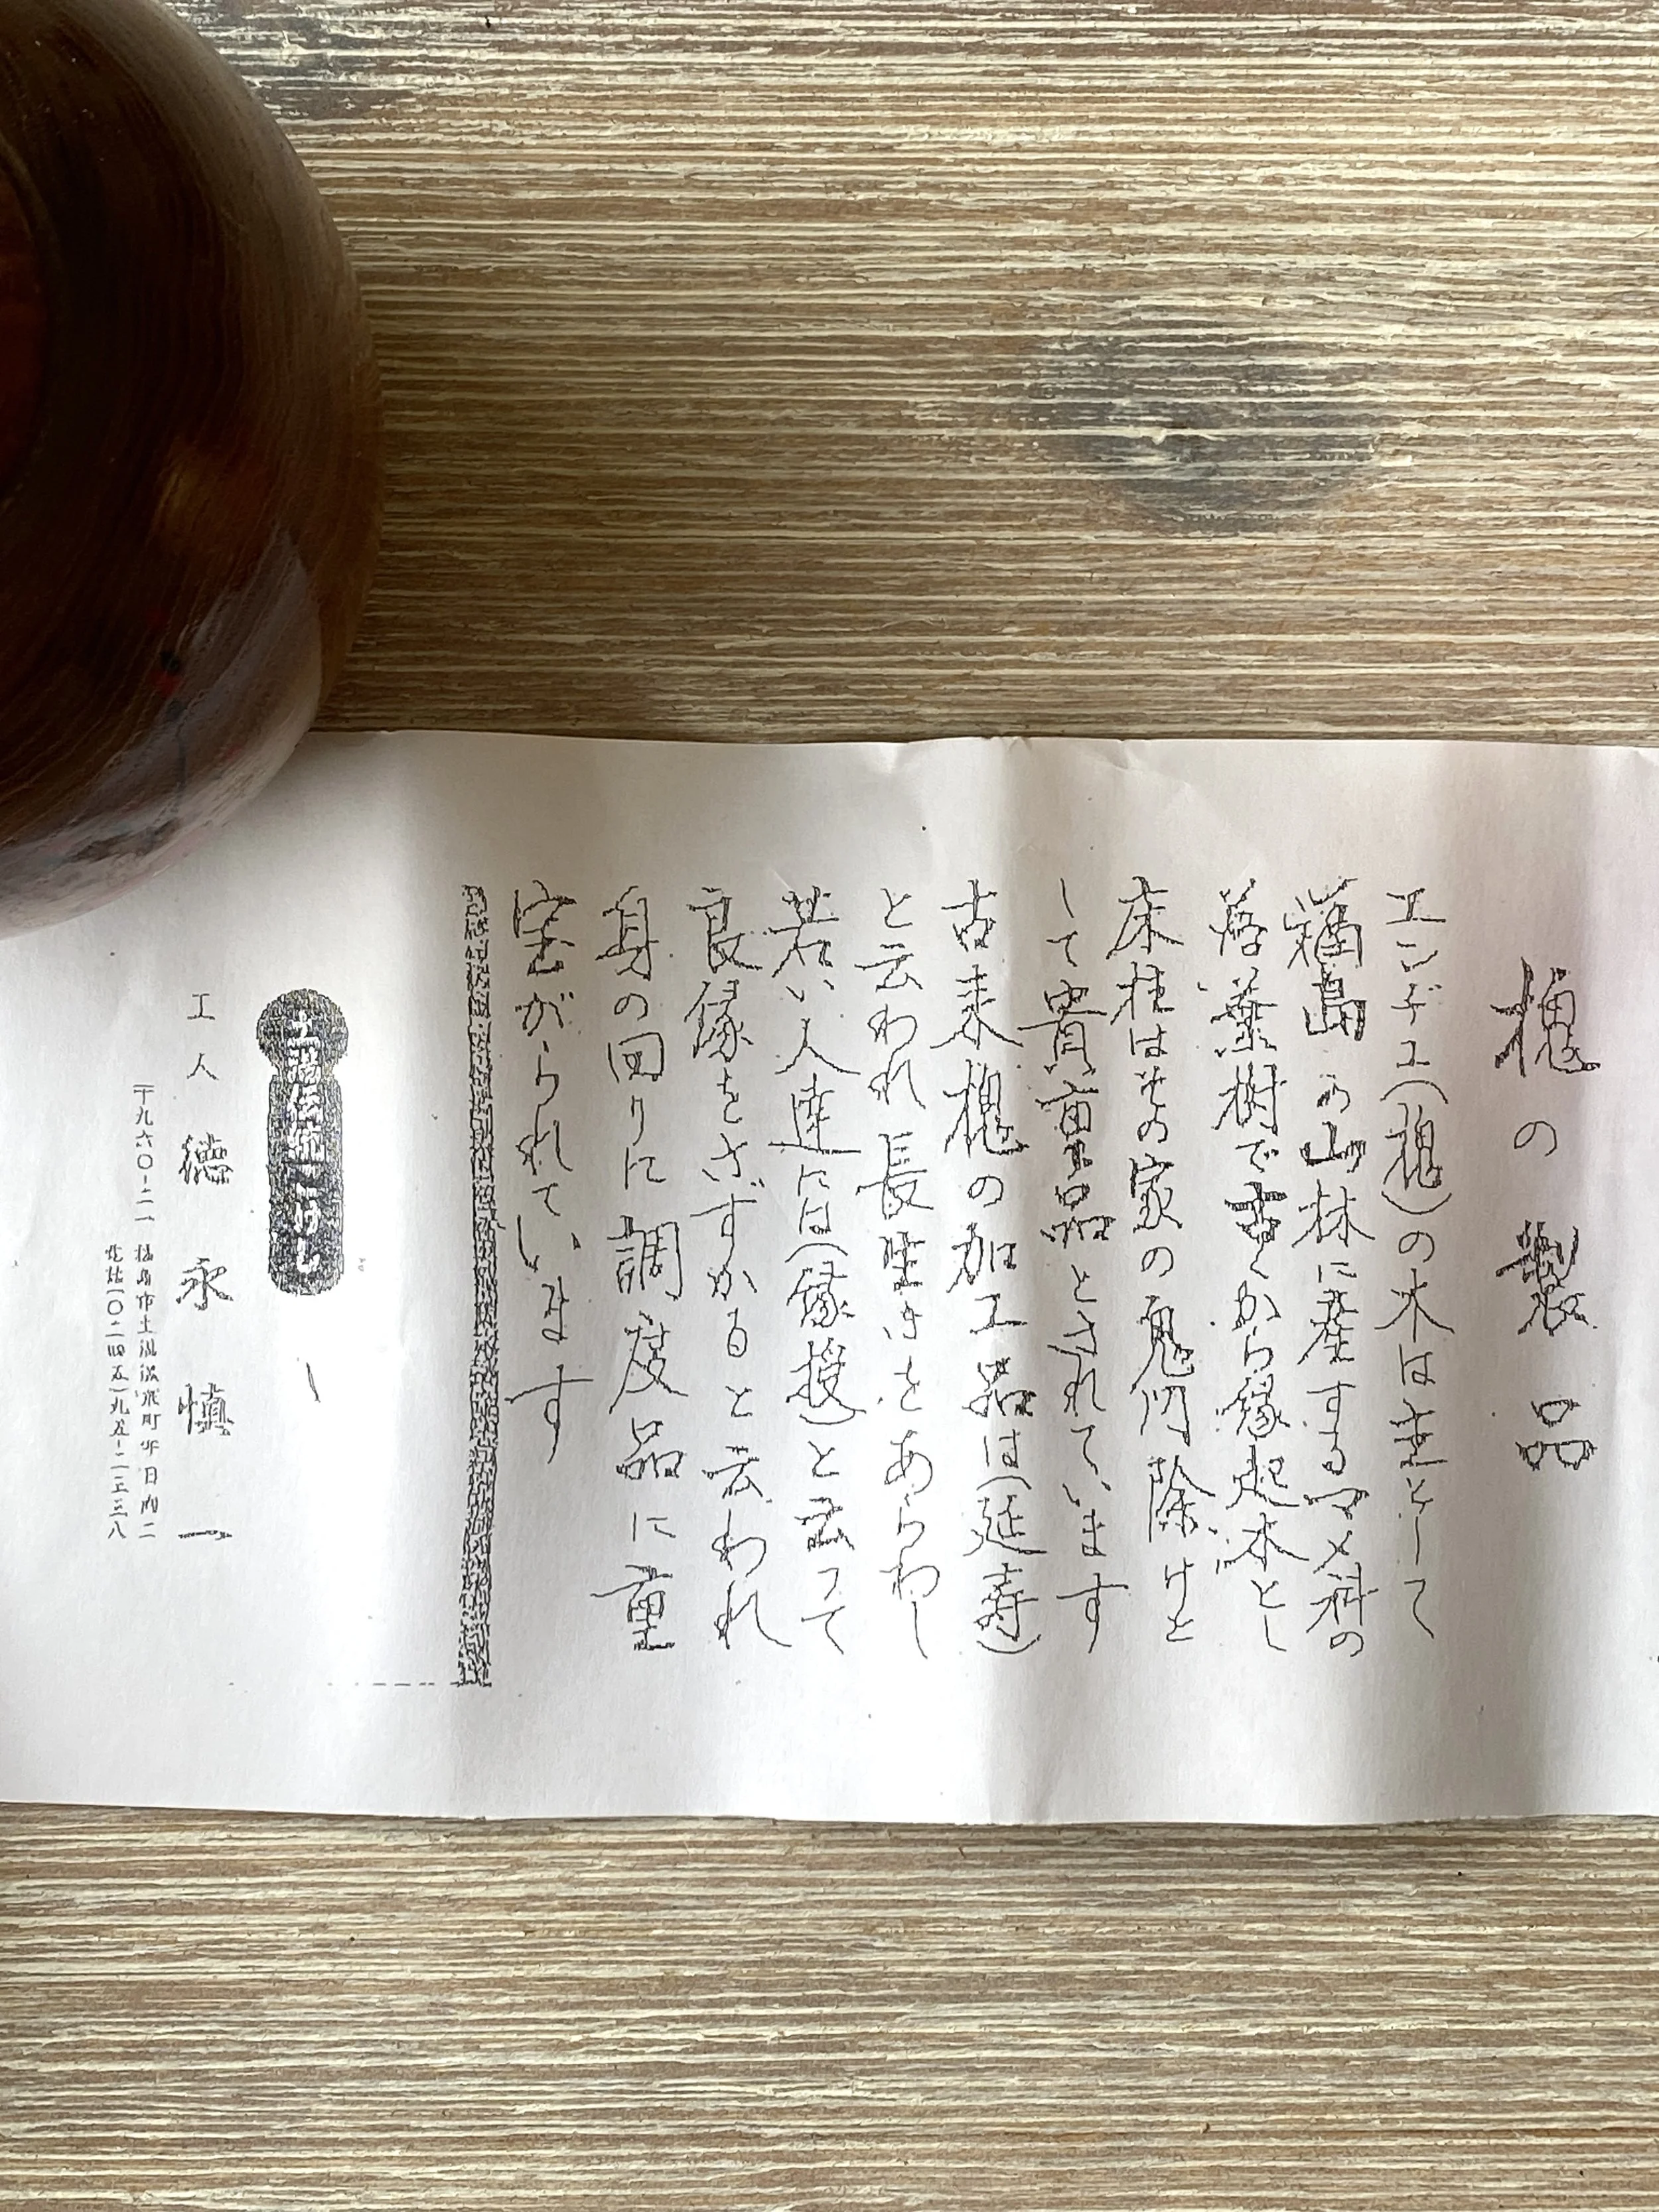 槐の製品
エンヂユ(槐)の木は主として
福島の山林に産するマメ科の
落葉樹で古くから縁起木とし
床柱はその家の鬼門除けと
して貴重品とされています
古来槐の加工品は(延寿)
と云われ長生きをあらわし
若い人達には(縁授)と云って
良縁をさずかると云われ
身の回りに調度品に重
宝がられています
土湯伝統こけし
工人 徳永慎一
〒九六〇-二一 福島市土湯温泉町字